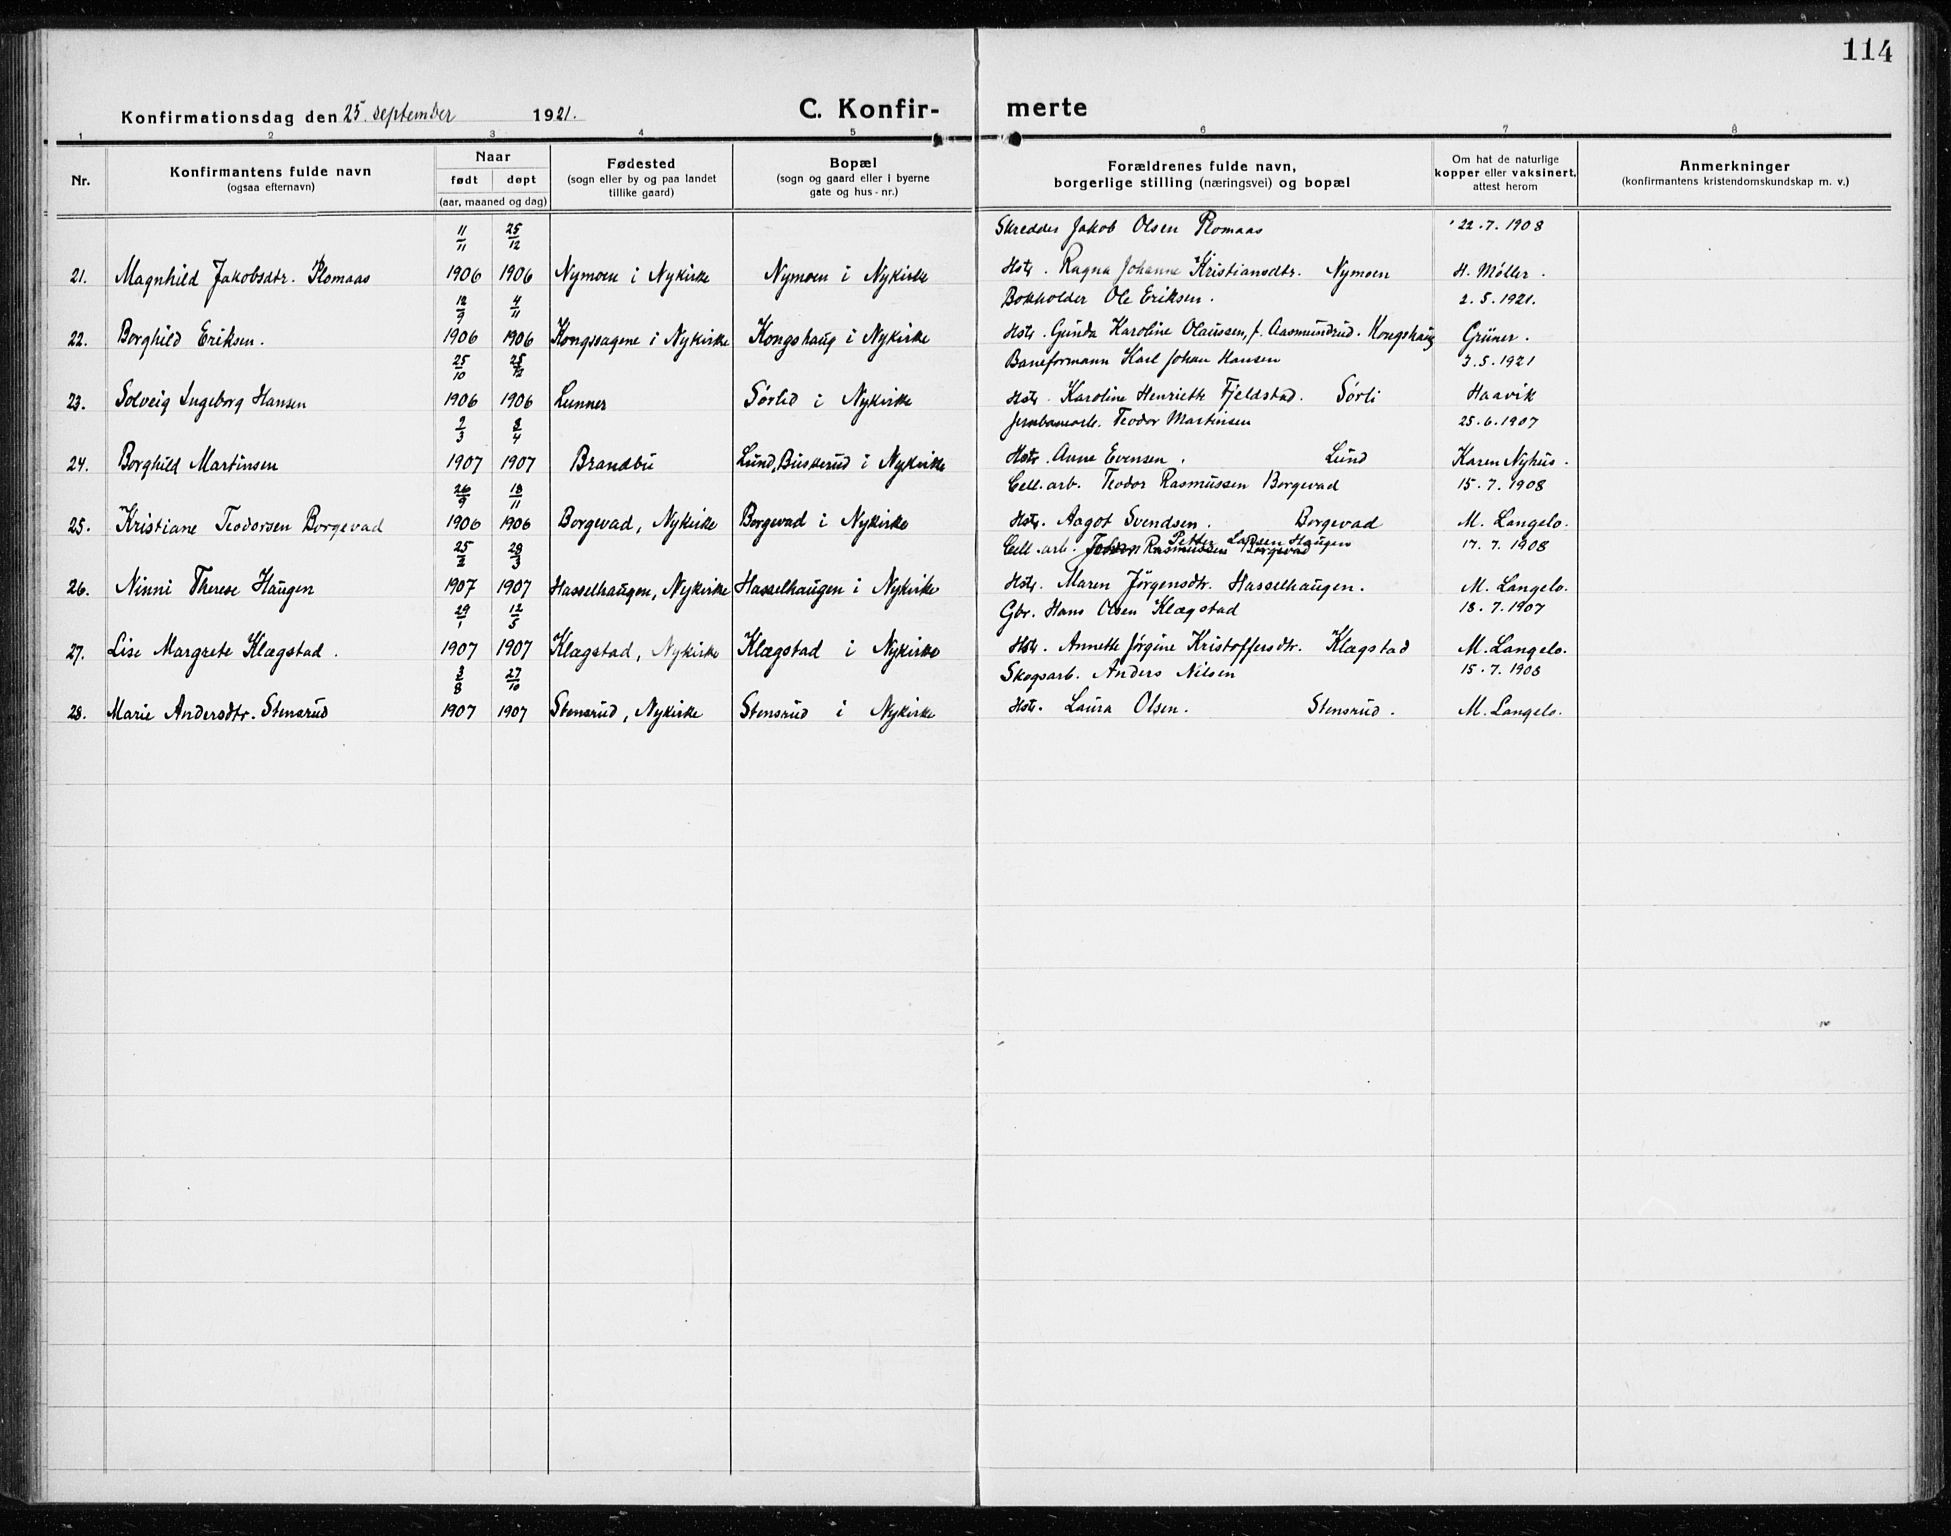 114
Konfirmationsdag den 25. september 1921.
C. Konfir-
merte
1 2 3 4 5 6 7 8
Nr.
Konfirmantens fulde navn
(ogsaa efternavn)
Naar
født døpt
(aar, maaned og dag)
Fødested
(sogn eller by og paa landet
tillike gaard)
Bopæl
(sogn og gaard eller i byerne
gate og hus - nr.)
Forældrenes fulde navn,
borgerlige stilling (næringsvei) og bopæl
Om hat de naturlige
kopper eller vaksinert,
attest herom
Anmerkninger
(konfirmantens kristendomskundskap m. v.)
11/11 25/12 Skredder Jakob Olsen Plomaas 22.7.1908
21. Magnhild Jakobsdtr. Plomaas 1906 1906 Nymoen i Nykirke Nymoen i Nykirke Hstr. Ragna Johanne Kristiansdtr. Nymoen H. Møller.
12/9 4/11 Bokholder Ole Eriksen. 2.5.1921.
22. Borghild Eriksen. 1906 1906 Kongssagene i Nykirke Kongshaug i Nykirke Hstr. Gunda Karoline Olaussen, f. Aasmundrud. Kongshaug Grüner.
25/10 25/12 Baneformann Karl Johan Hansen 3.5.1921
23. Solveig Ingeborg Hansen 1906 1906 Lunner Sørlid i Nykirke Hstr. Karoline Henriette Fjeldstad. Sørli Haavik
2/3 8/4 Jernbanearb. Teodor Martinsen 25.6.1907
24. Borghild Martinsen 1907 1907 Brandbu Lund, Buskerud i Nykirke Hstr. Anne Evensen. Lund Karen Nyhus.
26/9 18/11 Cell. arb. Teodor Rasmussen Borgevad 15.7.1908
25. Kristiane Teodorsen Borgevad 1906 1906 Borgevad, Nykirke Borgevad i Nykirke Hstr. Aagot Svendsen. Borgevad M. Langelo.
Petter Larsen Haugen
25/2 28/3 Cell. arb. Rasmussen Borgevad 17.7.1908
26. Ninni Therese Haugen 1907 1907 Hasselhaugen, Nykirke Hasselhaugen i Nykirke Hstr. Maren Jørgensdtr. Hasselhaugen. M. Langelo.
29/1 12/5 Gbr. Hans Olsen Klægstad 18.7.1907
27. Lise Margrete Klægstad. 1907 1907 Klægstad, Nykirke Klægstad i Nykirke Hstr. Annette Jørgine Kristoffersdtr. Klægstad M. Langelo.
3/8 27/10 Skogsarb. Anders Nilsen 15.7.1908
28. Marie Andersdtr. Stensrud 1907 1907 Stensrud, Nykirke Stensrud i Nykirke Hstr. Laura Olsen. Stensrud. M. Langelo.